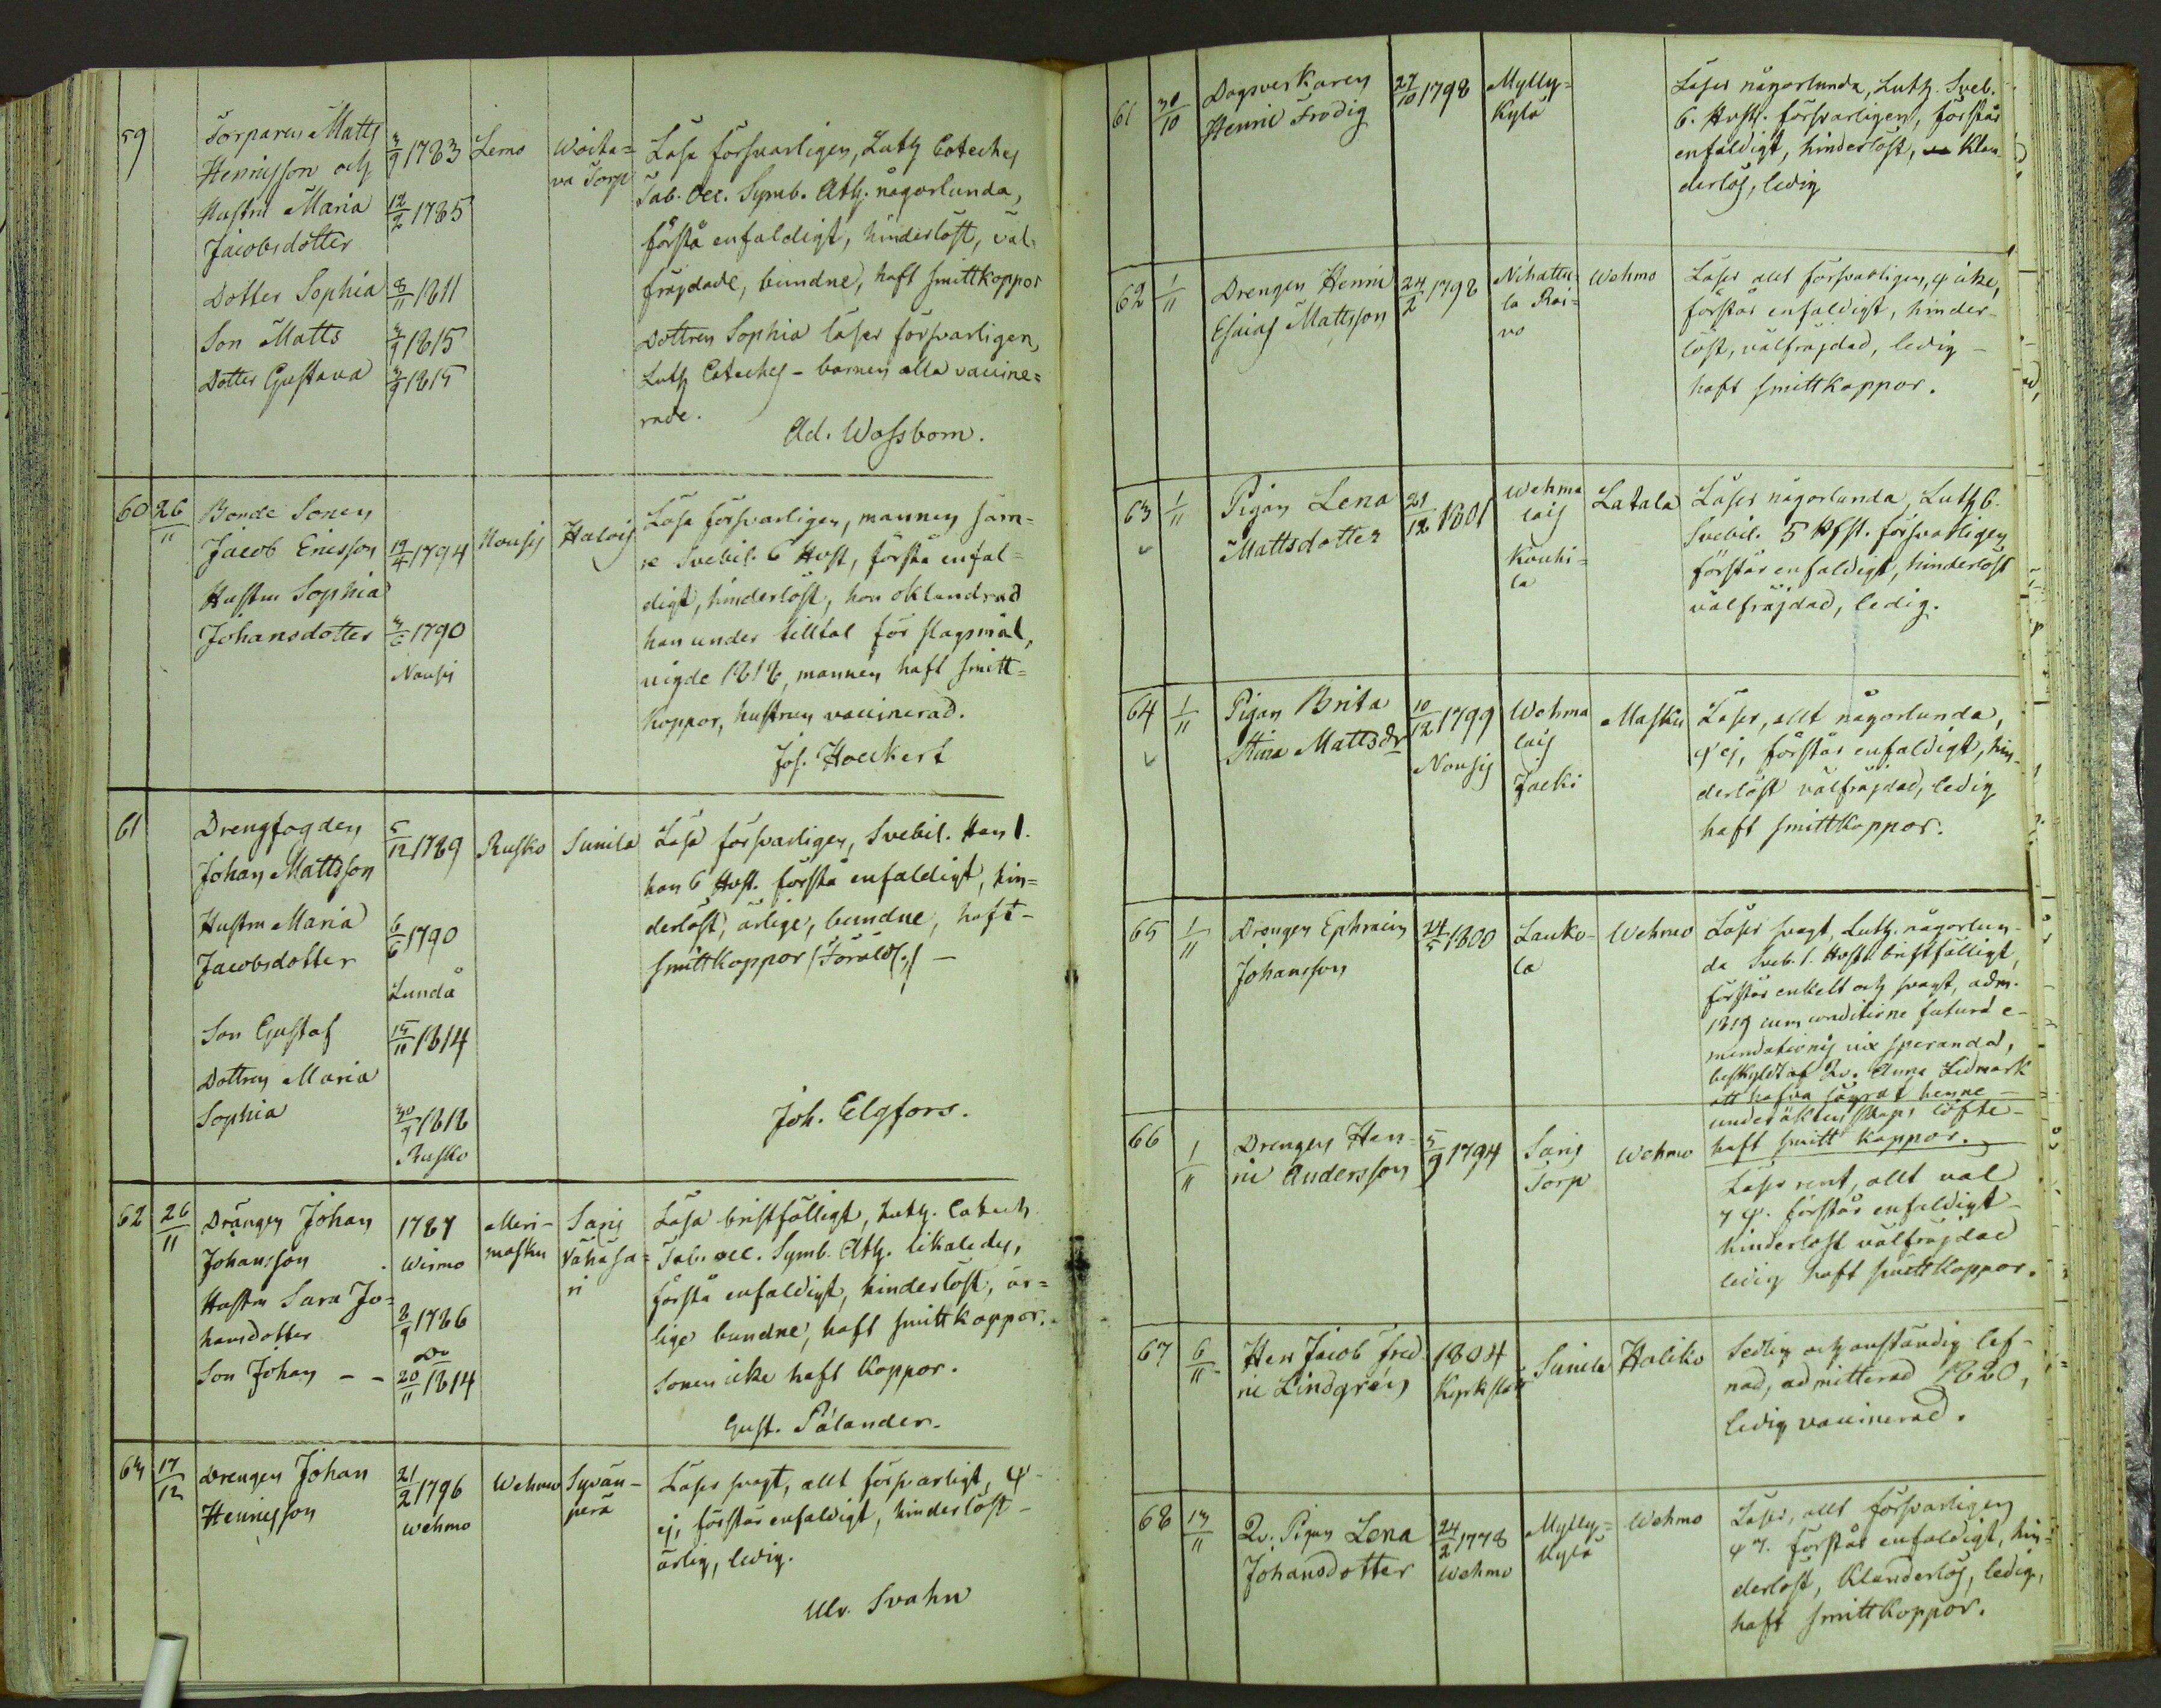 59
Torparen Matts
Henricsson och
Hustru Maria
Jacobsdotter
Dotter Sophia
Son Matts
Dotter Gustava
3/9 1783
12/2 1785
8/11 1811
3/9 1815
3/9 1815
Lemo
Woita=
va Torp
Läsa försvarligen, Luth Cateches
Tab. Oec. Symb. Ath. någorlunda,
förstå enfaldigt, hinderlöst, väl
fräjdade, bundne, haft smittkoppor
Dottren Sophia läser försvarligen
Luth Cateches - barnen alla vaccine=
rade.
Ad. Wassbom.
60 26/11
Bonde Sonen
Jacob Ericsson
Hustru Sophia
Johansdotter
19/4 1794
3/6 1790
Nousis
Nousis
Halois
Läsa försvarligen, mannen säm=
re Svebil. 6 Hvst, förstå enfal=
digt, hinderlöst, hon oklandrad
han under tilltal för slagsmål,
vigde 1818, mannen haft smitt=
koppor, hustrun vaccinerad.
Jos. Hoeckert
61
Drengfogden
Johan Mattsson
Hustru Maria
Jacobsdotter
Son Gustaf
Dottren Maria
Sophia
5/12 1789
6/6 1790
Lundå
15/10 1814
30/9 1818
Rusko
Rusko
Sunila
Läsa försvarligen, Svebil. Han 1.
hon 6 Hvst. förstå enfaldigt, hin=
derlöst, ärlige, bundne, haft -
smittkoppor
Joh. Elgfors.
62 26/11
Drängen Johan
Johansson
Hustru Sara Jo=
hansdotter
Son Johan - -
1787
Wirmo
8/9 1786
Do
20/11 1814
Meri-
masku
Saris
Vähäsa=
ri
Läsa bristfälligt, Luth. Catech
Tab. Oec. Symb. Ath. likaledes,
förstå enfaldigt, hinderlöst, är=
lige bundne, haft smittkoppor.
Sonen icke haft koppor.
Gust. Pålander.
63 17/12
Drengen Johan
Henricsson
21/2 1796
Wehmo
Wehmo
Syvän-
perä
Läser svagt, allt försvarligt, ψ
ej, förstår enfaldigt, hinderlöst -
ärlig, ledig.
Ulr. Svahn
61 30/10
Dagsverkaren
Henric Frodig
27/10 1798
Mylly=
kylä
Läser någorlunda, Luth. Sveb.
6. Hvst. försvarligen, förstår
enfaldigt, hinderlöst, klan
derlös, ledig
62 1/11
Drengen Henric
Esaias Mattsson
24/2 1798
Nihattu=
la Rai=
vo
Wehmo
Läser allt försvarligen, ψ icke,
förstår enfaldigt, hinder-
löst, välfräjdad, ledig -
haft smittkoppor.
63 1/11
Pigan Lena
Mattsdotter
21/12 1801
Wehma
lais
Kouhi=
la
Latala
Läser någorlunda, Luth 6.
Svebil. 5 Hfst. försvarligen
förstår enfaldigt, hinderlöst
välfräjdad, ledig.
64 1/11
Pigan Brita
Stina Mattsdr
10/12 1799
Nousis
Wehma
lais
Jäcki
Masku
Läser, allt någorlunda,
ψ ej, förstår enfaldigt, hin-
derlöst välfräjdad, ledig
haft smittkoppor.
65 1/11
Drengen Ephraim
Johansson
24/5 1800
Lauko-
la
Wehmo
Läser svagt, Luth. någorlun-
da Sveb. 1. Hvst. bristfälligt,
förstår enkelt och svagt, adm.
1819 cum conditione futura e-
mendationis vix speranda,
beskyld af Qv. Anna Ledmark
att hafva lägrat henne -
under äktenskaps löfte -
haft smitt koppor.
66 1/11
Drengen Hen-
ric Andersson
5/9 1794
Saris
Torp
Wehmo
Läser rent, allt väl
7 ψ. förstår enfaldigt -
hinderlöst välfräjdad
ledig haft smittkoppor.
67 6/11
Herr Jacob Fred
ric Lindgren
1804
Kyrkslätt
Sunila
Haliko
Sedlig och anständig lef-
nad, admitterad 1820,
ledig vaccinerad.
68 13/11
Qv. Pigan Lena
Johansdotter
24/2 1778
Wehmo
Mylly=
kylä
Wehmo
Läser, allt försvarligen
ψ 7. förstår enfaldigt, hin-
derlöst, klanderlös, ledig,
haft smittkoppor.